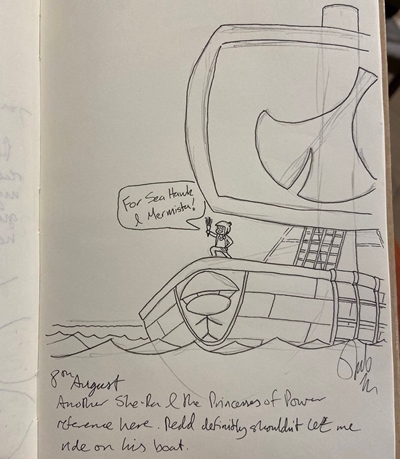 For Sea Hawk
& Mermista!
8th August
Another She-Ra & the Princesses of Power
reference here. Redd definitely shouldn't let me
ride on his boat.